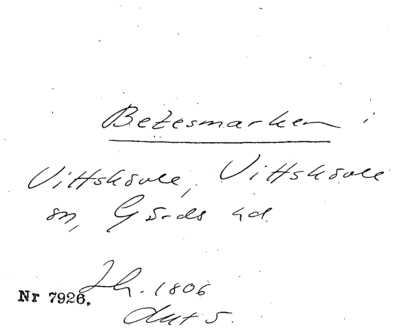 Betesmarken i
Vittskövle, Vittskövle
sn, Gärds hd.
Lh. 1806
Nr 7926.
Akt 5.